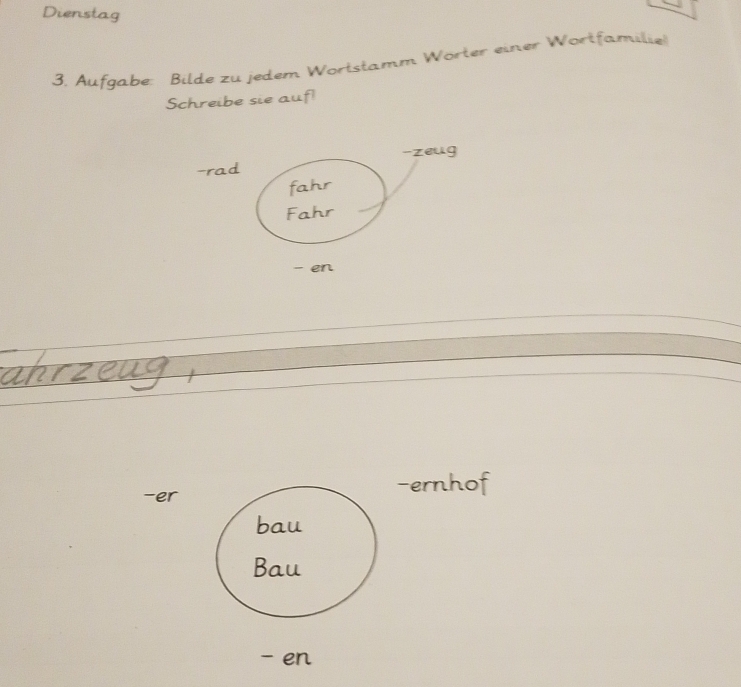 Dienstag
3. Aufgabe: Bilde zu jedem Wortstamm Wörter einer Wortfamilie!
Schreibe sie auf!
-zeug
-rad
fahr
Fahr
- en
ahrzeug,
-er
-ernhof
bau
Bau
- en